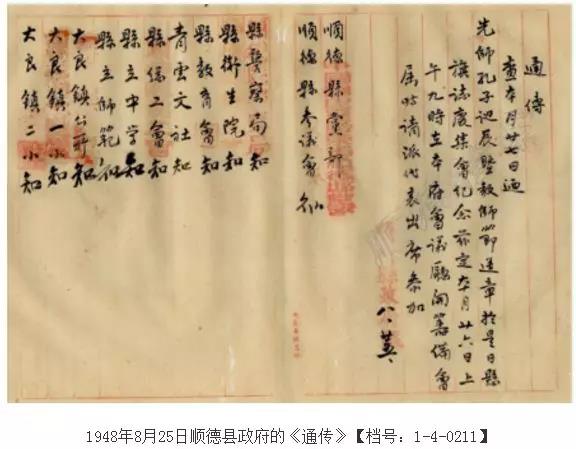 通傳
查本月廿七日適
先師孔子誕辰暨教師節遵章於是日懸
旗誌慶集會紀念茲定本月廿六日上
午九時在本府會議廳開籌備會
屆時請派代表出席參加
順德縣黨部
順德縣參議會
縣警察局知
縣衛生院知
縣教育會知
青雲文社知
縣總工會知
縣立中學知
縣立師範知
大良鎮公所知
大良鎮一小知
大良鎮二小知
1948年8月25日顺德县政府的《通传》【档号：1-4-0211】